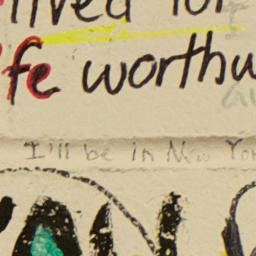 lived for
fe worthw
I'll be in New Yor